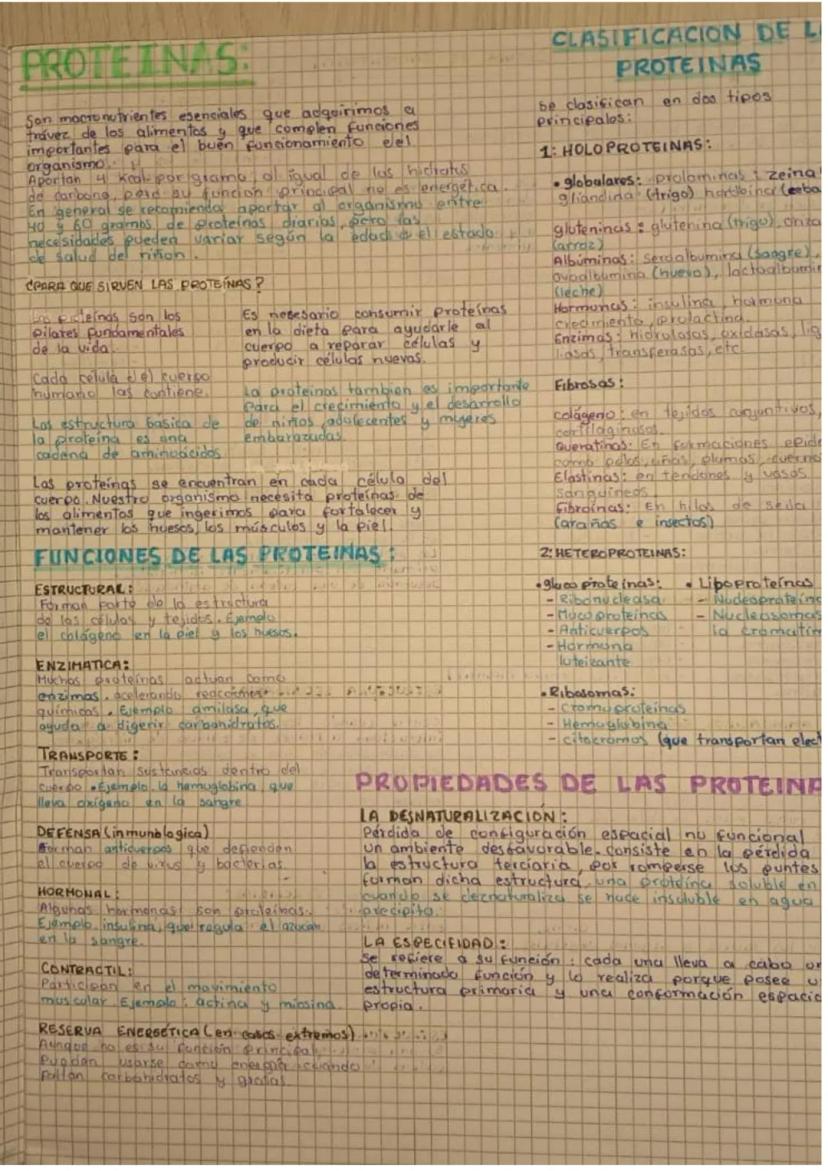 PROTEINAS:
Son macronutrientes esenciales que adquirimos a
trávez de los alimentos y que complen funciones
importantes para el buen funcionamiento del
organismo.
Aportan 4 kcal por gramo, al igual de los hidratos
de carbono, pero su función principal no es energética.
En general se recomienda aportar al organismo entre
40 y 60 gramos de proteínas diarias, pero las
necesidades pueden variar según la edad el estado
de salud del riñon.
¿PARA QUE SIRVEN LAS PROTEÍNAS?
Las proteínas son los
pilares fundamentales
de la vida.
Cada célula del cuerpo
humano las contiene.
Las estructura basica de
la proteína es una
cadena de aminoácidos
Es necesario consumir proteínas
en la dieta para ayudarle al
cuerpo a reparar células y
producir células nuevas.
La proteinas tambien es importante
para el crecimiento y el desarrollo
de niños, adolecentes y mujeres
embarazadas.
Las proteínas se encuentran en cada célula del
cuerpo. Nuestro organismo necesita proteínas de
los alimentos que ingerimos para fortalecer y
mantener los huesos, los músculos y la piel.
FUNCIONES DE LAS PROTEINAS:
ESTRUCTURAL:
Forman parte de la estructura
de las células y tejidos. Ejemplo
el colágeno en la piel y los huesos.
ENZIMATICA:
Muchas proteínas actuan como
enzimas, acelerando reacciones
químicas. Ejemplo amilasa, que
ayuda a digerir carbohidratos.
TRANSPORTE:
Transportan sustancias dentro del
cuerpo. Ejemplo la hemoglobina que
lleva oxígeno en la sangre
DEFENSA (inmunologica)
Forman anticuerpos que defienden
el cuerpo de virus y bacterias.
HORMONAL:
Algunas hormonas son proteínas.
Ejemplo insulina, que regula el azucar
en la sangre.
CONTRACTIL:
Participan en el movimiento
muscular Ejemplo: actina y miosina.
RESERVA ENERGETICA (en casos extremos)
Aunque no es su función principal,
puedan usarse como energía cuando
faltan carbohidratos y grasas
CLASIFICACION DE L
PROTEINAS
Se clasifican en dos tipos
principales:
1: HOLOPROTEINAS:
• globulares: prolaminas: zeina
gliandina (trigo) hordeina (ceba
gluteninas: glutenina (trigo), oriza
(arroz)
Albúminas: seroalbumina (sangre),
ovoalbumina (huevo), lactoalbumin
(leche)
Hormonas: insulina, hormona
crecimiento, prolactina.
Enzimas: hidrolasas, oxidasas, lig
liasas, transferasas, etc.
Fibrosas:
colágeno: en tejidos conjuntivos,
cartilaginosos.
Queratinas: En formaciones epide
como pelos, uñas, plumas, cuerno
Elastinas: en tendones y vasos
sanguíneos.
fibroínas: En hilos de seda
(arañas e insectos)
2: HETEROPROTEINAS:
• glucoproteínas:
- Ribonucleasa
- Mucoproteínas
- Anticuerpos
- Hormona
luteizante
• Lipoproteínas
- Nucleoproteínas
- Nucleosomas
la cromatin
• Ribosomas:
- Cromoproteínas
- Hemoglobina
- citocromos (que transportan elect
PROPIEDADES DE LAS PROTEINA
LA DESNATURALIZACIÓN:
Pérdida de configuración espacial no funcional
un ambiente desfavorable. consiste en la pérdida
la estructura terciaria, por romperse los puntes
forman dicha estructura, una proteína soluble en
cuando se desnaturaliza se hace insoluble en agua
precipita.
LA ESPECIFIDAD:
Se refiere a su función: cada una lleva a cabo un
determinado función y lo realiza porque posee u
estructura primaria y una conformación espacia
propia.